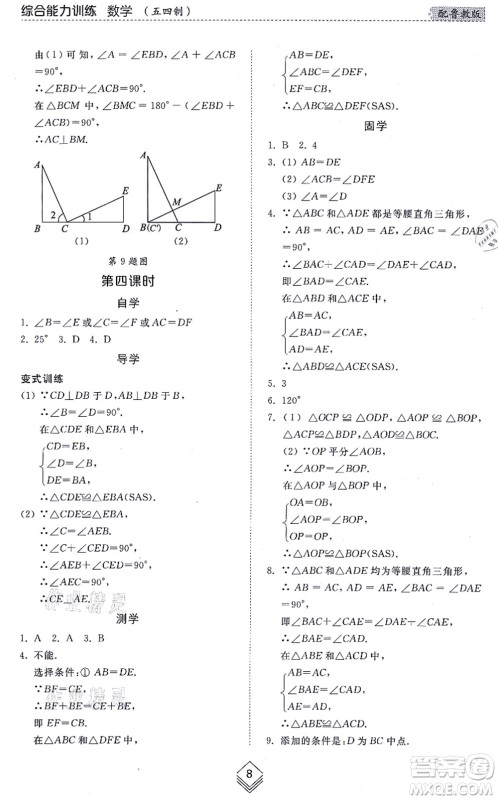 综合能力训练 数学 （五四制）
配鲁教版
由(1)可知，∠EBD=∠A，
∴∠EBD+∠ACB=
∠A+∠ACB=90°，
在△BCM 中，∠BMC=180°-(∠EBD
+∠ACB)=90°，
∴AC⊥BM.
A
E
2
1
B
C
D
(1)
A
M
E
B(C′)
C
D
(2)
第 9 题图
第四课时
自学
1. ∠B=∠E 或∠A=∠D 或 AC=DF
2. 25° 3. D 4. D
导学
变式训练
(1) ∵CD⊥DB 于 D，AB⊥DB 于 B，
∴∠B=∠D=90°.
在△CDE 和△EBA 中，
CD=EB，
∠D=∠B，
DE=BA，
∴△CDE≌△EBA(SAS).
(2) ∵△CDE≌△EBA，
∴∠C=∠AEB，
∵∠C+∠CED=90°，
∴∠AEB+∠CED=90°，
∴∠CEA=90°，
∴CE⊥AE.
测学
1. A 2. A 3. B
4. 不能.
选择条件：① AB=DE.
∵BF=CE，
∴BF+CF=CE+CF，
即 EF=CB，
在△ABC 和△DFE 中，
AB=DE，
∠ABC=∠DEF，
EF=CB，
∴△ABC≌△DFE(SAS).
固学
1. B 2. 4
3. (1) AB=DE
(2) ∠ACB=∠DFE
(3) ∠A=∠D
4. ∵△ABC 和△ADE 都是等腰直角三角形，
∴ AB = AC，AD = AE，∠BAC =
∠DAE=90°，
∴∠BAC+∠DAC=∠DAE+∠CAD，
即∠BAD=∠CAE，
在△ABD 和△ACE 中，
AB=AC，
∠BAD=∠CAE，
AD=AE，
∴△ABD≌△ACE(SAS).
5. 3
6. 120°
7. (1) △OCP ≌ △ODP，△AOP ≌ △BOP，
△ACP≌△BDP，△AOD≌△BOC.
(2) ∵OP 平分∠AOB，
∴∠AOP=∠BOP，
在△AOP 与△BOP 中，
OA=OB，
∠AOP=∠BOP，
OP=OP，
∴△AOP≌△BOP(SAS).
8. ∵△ABC 和△ADE 均为等腰直角三角形，
∴ AB = AC，AE = AD，∠BAC =
∠EAD=90°，
∴∠BAC+∠CAE=∠EAD+∠CAE，
即∠BAE=∠CAD，
在△ABE 和△ACD 中，
AB=AC，
∠BAE=∠CAD，
AE=AD，
∴△ABE≌△ACD(SAS).
9. 添加的条件是：D 为 BC 中点.
8
答案圈